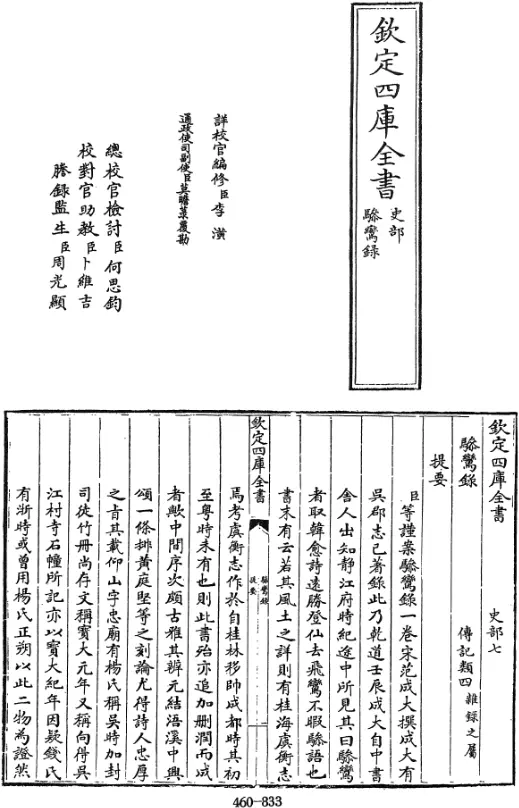 欽定四庫全書
史部
驂鸞錄
詳校官編修臣李潢
通政使司副使臣莫瞻菉覆勘
總校官檢討臣何思鈞
校對官助教臣卜維吉
謄錄監生臣周光顯
欽定四庫全書 史部七
驂鸞錄 傳記類四 雜錄之屬
提要
臣等謹案驂鸞錄一卷宋范成大撰成大有
吳郡志已著錄此乃乾道壬辰成大自中書
舍人出知静江府時紀途中所見其曰驂鸞
者取韓愈詩遠勝登仙去飛鸞不暇驂語也
書末有云若其風土之詳則有桂海虞衡志
欽定四庫全書
驂鸞錄
提要
一
焉考虞衡志作於自桂林移帥成都時其初
至粤時未有也則此書殆亦追加刪潤而成
者歟中間序次頗古雅其辨元結浯溪中興
頌一條排黄庭堅等之刻論尤得詩人忠厚
之㫖其載仰山孚忠廟有楊氏稱吳時加封
司徒竹冊尚存文稱寳大元年又稱向得吳
江村寺石幢所記亦以寳大紀年因疑錢氏
有浙時或曾用楊氏正朔以此二物為證然
460-833